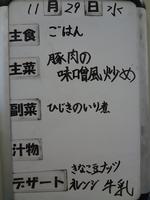 11月29日水
主食 ごはん
主菜 豚肉の
味噌風炒め
副菜 ひじきのいり煮
汁物
デザート きなこ豆ナッツ
オレンジ 牛乳